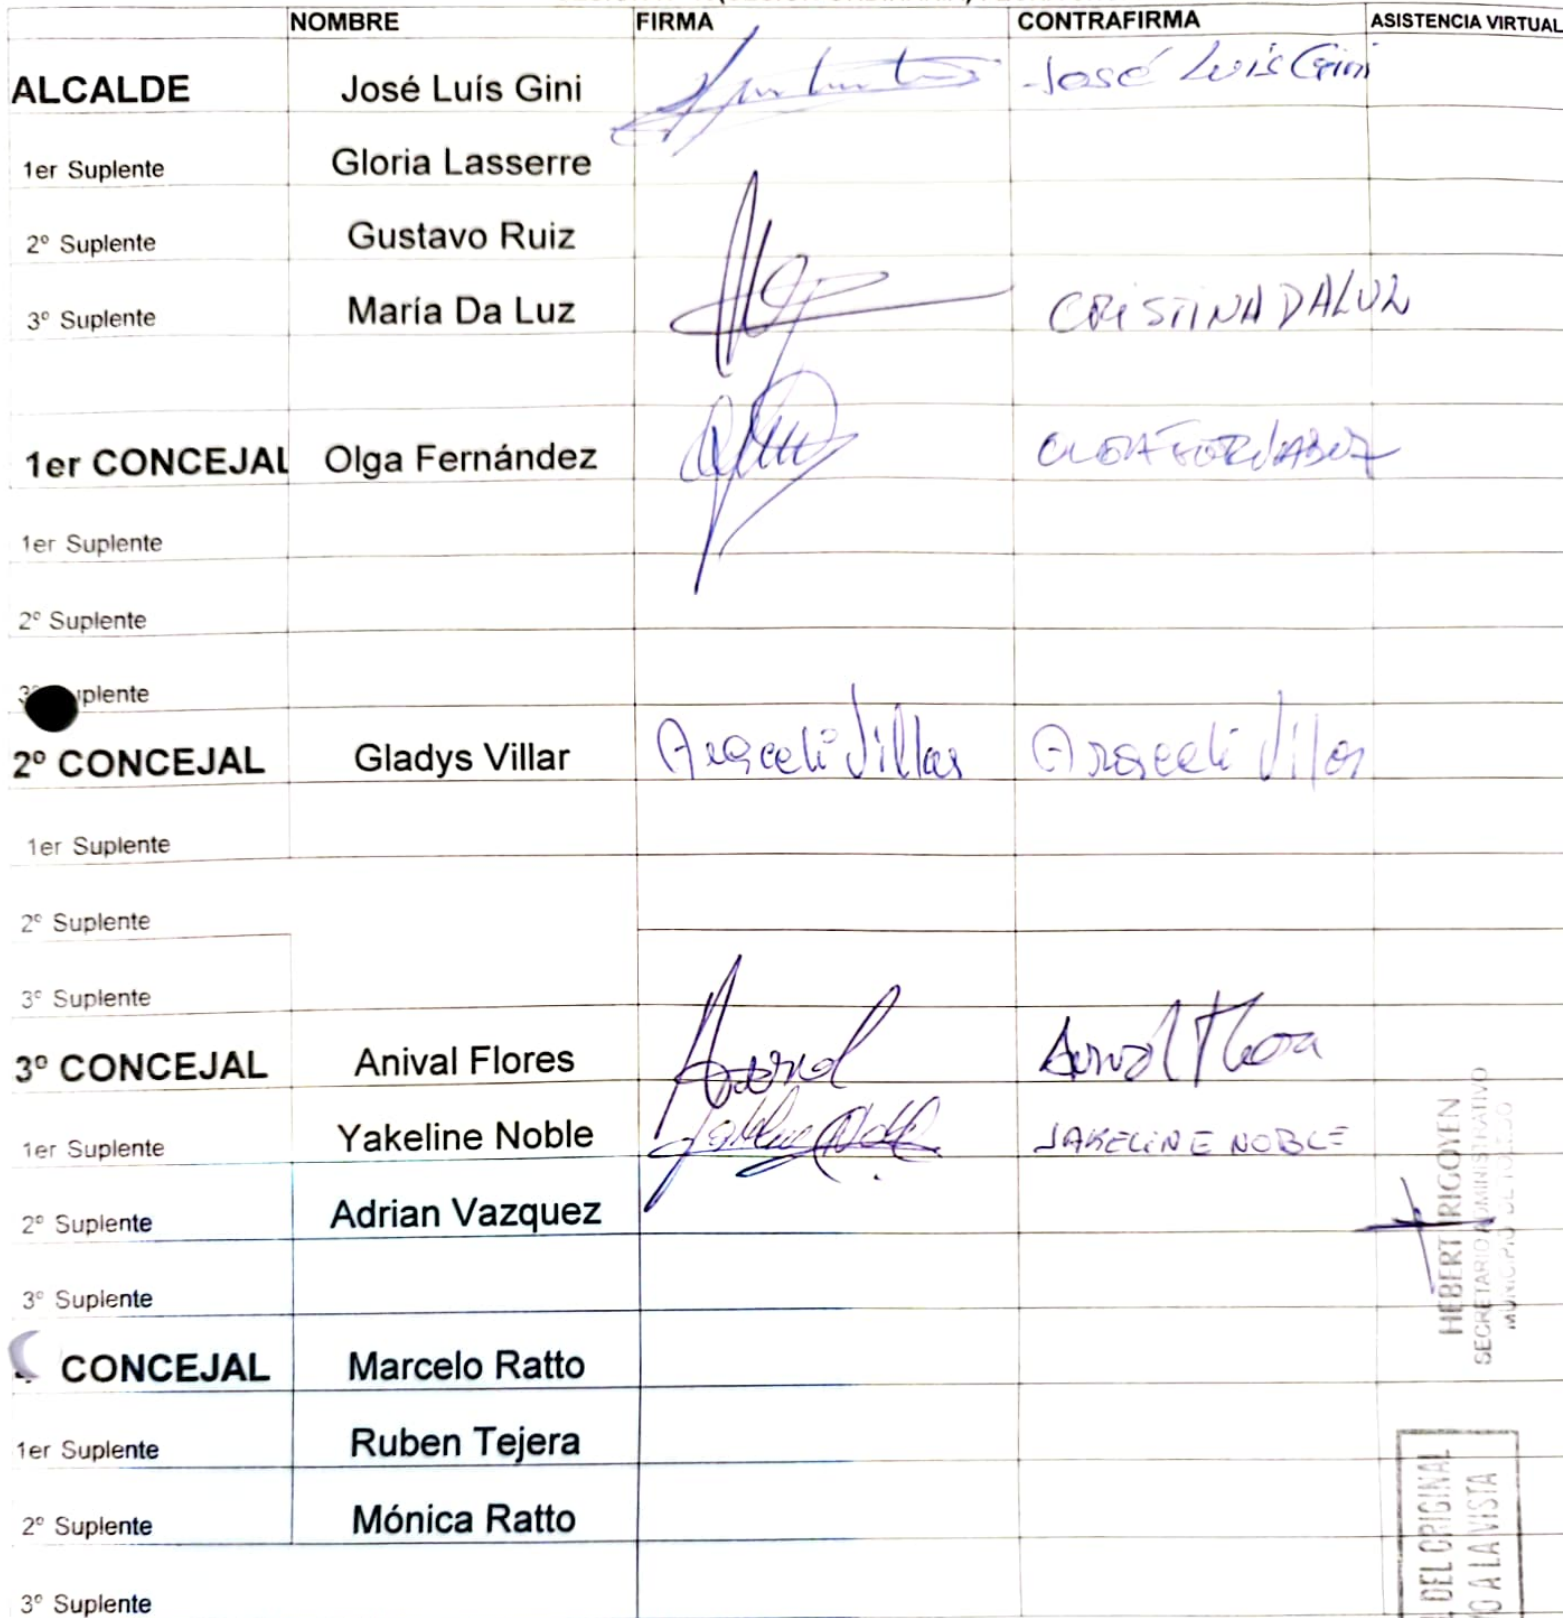 NOMBRE FIRMA CONTRAFIRMA ASISTENCIA VIRTUAL
ALCALDE José Luís Gini José Luis Gini
1er Suplente Gloria Lasserre
2º Suplente Gustavo Ruiz
3º Suplente María Da Luz CRISTINA DALUZ
1er CONCEJAL Olga Fernández
1er Suplente
2º Suplente
3º uplente
2º CONCEJAL Gladys Villar Araceli Villar Araceli Villar
1er Suplente
2º Suplente
3º Suplente
3º CONCEJAL Anival Flores
1er Suplente Yakeline Noble JAKELINE NOBLE
2º Suplente Adrian Vazquez
3º Suplente
CONCEJAL Marcelo Ratto
1er Suplente Ruben Tejera
2º Suplente Mónica Ratto
3º Suplente
HEBERT IRIGOYEN
SECRETARIO ADMINISTRATIVO
MUNICIPIO DE TOLEDO
DEL ORIGINAL
A LA VISTA